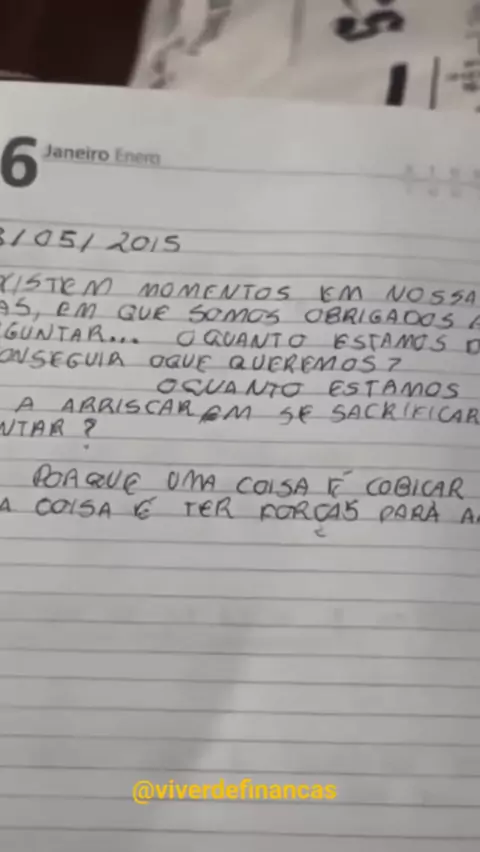 6 Janeiro Enero
/05/2015
XISTEM MOMENTOS EM NOSSA
AS, EM QUE SOMOS OBRIGADOS A
GUNTAR... OQUANTO ESTAMOS D
ONSEGUIR OQUE QUEREMOS?
OQUANTO ESTAMOS
A ARRISCAR EM SE SACRIFICAR
NTAR?
PORQUE UMA COISA É COBIÇAR
A COISA É TER FORÇAS PARA A
@viverdefinancas